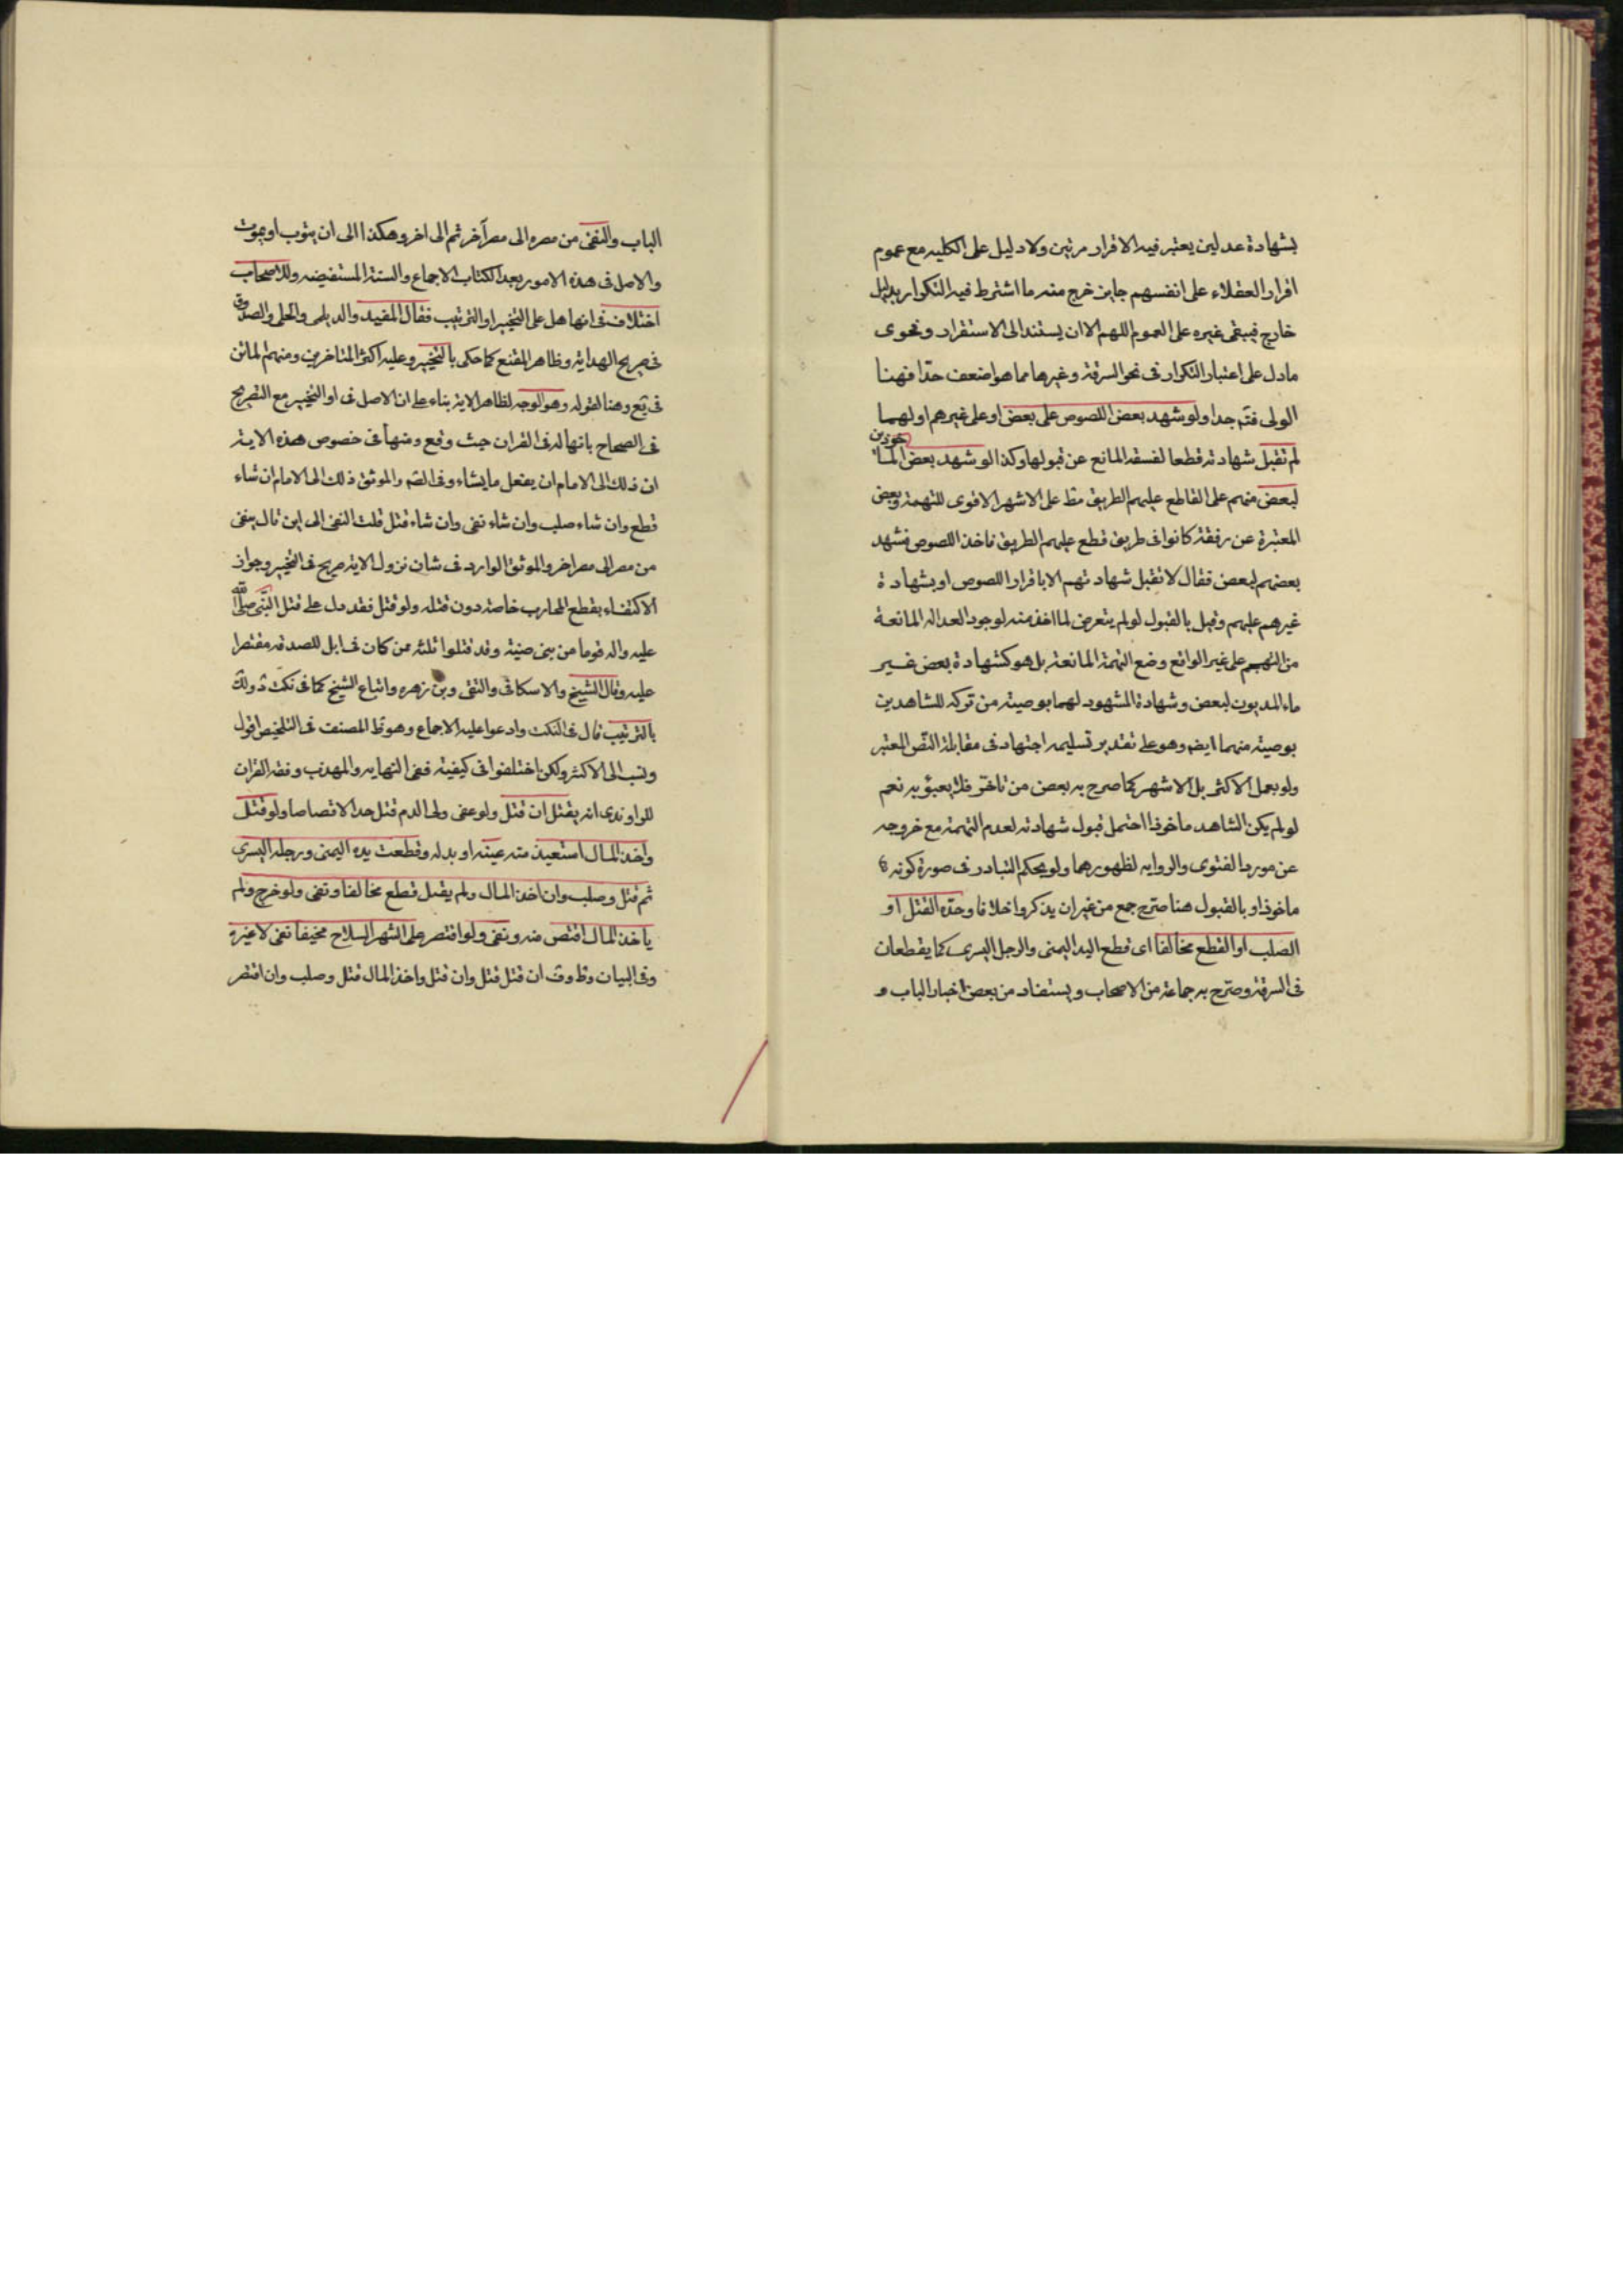 بشهادة عدلين يعتبر فيه الاقرار مرتين ولا دليل على الكليه مع عموم
اقرار العقلاء على انفسهم جايز خرج منه ما اشترط فيه التكرار بدليل
خارج فيبقى غيره على العموم اللهم الا ان يستند الى الاستقراء و فحوى
ما دل على اعتبار التكرار فى نحو السرقة وغيرها مما هو اضعف حدّا فهنا
اولى فتم جدا ولو شهد بعض اللصوص على بعض او على غيرهم او لهما
لم تقبل شهادته قطعا لفسقه المانع عن قبولها وكذا لو شهد بعض الماخوذين
لبعض منهم على القاطع عليهم الطريق مط على الاشهر الاقوى للتهمة وبعض
المعتبرة عن رفقة كانوا فى طريق قطع عليهم الطريق فاخذ اللصوص فشهد
بعضهم لبعض فقال لا تقبل شهادتهم الا باقرار اللصوص او بشهادة
غيرهم عليهم وقيل بالقبول لو لم يتعرض لما اخذ منه لوجود العداله المانعة
من التهجم على غير الواقع وضع التهمة المانعة بل هو كشهادة بعض غير
ماء المديون لبعض وشهادة المشهود لهما بوصية من تركه للشاهدين
بوصية منهما ايضا وهو على تقدير تسليمه اجتهاد فى مقابلة النّص المعتبر
ولو بعمل الاكثر بل الاشهر كما صرح به بعض من تاخّر فلا يعبؤ به نعم
لو لم يكن الشاهد ماخوذا احتمل قبول شهادته لعدم التهمة مع خروجه
عن مورد الفتوى والروايه لظهورهما ولو بحكم التبادر فى صورة كونه
ماخوذا و بالقبول هنا صرّح جمع من غير ان يذكروا خلافا وحدّه القتل او
الصلب او القطع مخالفا اى قطع اليد اليمنى والرجل اليسرى كما يقطعان
فى السرقة وصرّح به جماعة من الاصحاب ويستفاد من بعض اخبار الباب و
الباب والنفى من مصره الى مصر آخر ثم الى اخر وهكذا الى ان يتوب او يموت
والاصل فى هذه الامور بعد الكتاب الاجماع والسنة المستفيضه وللاصحاب
اختلاف فى انها هل على التخيير او الترتيب فقال المفيد والديلمى والحلى والصدوق
فى صريح الهداية وظاهر المقنع كما حكى بالتخيير وعليه اكثر المتاخرين ومنهم الماتن
فى يع وهنا لقوله وهو الوجه لظاهر الاية بناء على ان الاصل فى او التخيير مع التصريح
فى الصحاح بانها له فى القران حيث وقع ومنها فى خصوص هذه الاية
ان ذلك الى الامام ان يفعل ما يشاء وفى الصّم والموثق ذلك الى الامام ان شاء
قطع وان شاء صلب وان شاء نفى وان شاء قتل قلت النفى الى اين قال ينفى
من مصر الى مصر اخر والموثق الوارد فى شان نزول الاية صريح فى التخيير وجواز
الاكتفاء بقطع المحارب خاصة دون قتله ولو قتل فقد دل على قتل النبّى صلى الله
عليه واله قوما من بنى ضبة وقد قتلوا ثلثه ممن كان فى ابل للصدقه مقتصرا
عليه وقال الشيخ والاسكافى والتقى وبن زهره واتباع الشيخ كما فى نكت
بالترتيب قال فى النكت وادعوا عليه الاجماع وهو ظ المصنف فى التلخيص اقول
ونسب الى الاكثر ولكن اختلفوا فى كيفية ففى النهايه والمهذب وفقه القران
للراوندى انه يقتل ان قتل ولو عفى ولى الدم قتل حدا لا قصاصا ولو قتل
واخذ المال استعيد منه عينه او بدله وقطعت يده اليمنى ورجله اليسرى
ثم قتل وصلب وان اخذ المال ولم يقتل قطع مخالفا ونفى ولو خرج ولم
ياخذ المال اقتص منه ونفى ولو اقتصر على الشهر السلاح مخيفا نفى لا غيره
وفى البيان وظ وف ان قتل قتل وان قتل واخذ المال قتل وصلب وان اقتصر